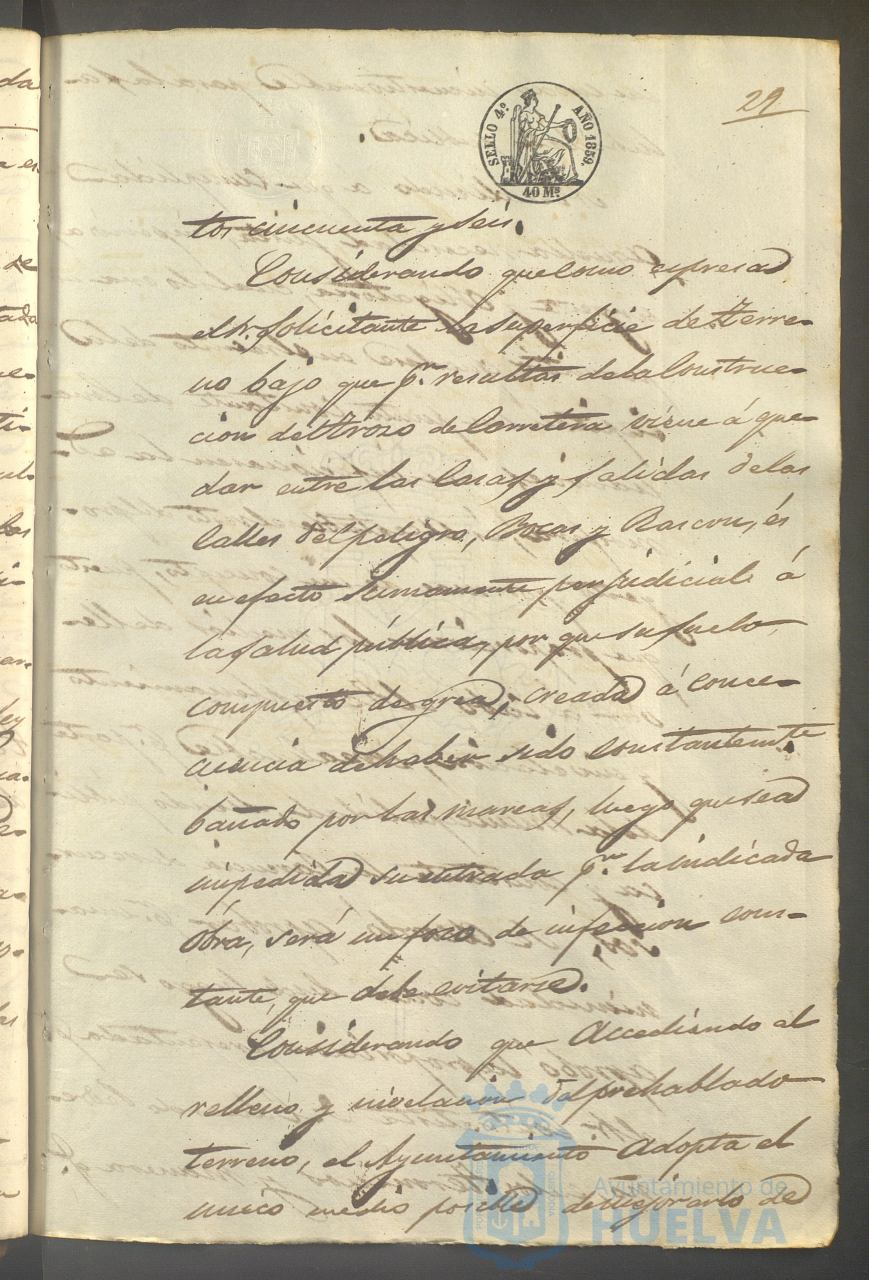 29
SELLO 4º AÑO 1859.
40 Ms.
tos cincuenta y seis.
Considerando que como espresa
el Sr. Solicitante la superficie de terre-
no bajo que pr. resultas de la Construc-
cion del trozo de Carretera viene á que-
dar entre las Casas y salidas de las
Calles del peligro, Bocas y Rascon, és
en efecto sumamente perjudicial á
la salud pública, por que su suelo
compuesto de greda, creada á conce-
cuencia de haber sido constantemte.
bañado por las mareas, luego que sea
impedida su entrada pr. la indicada
Obra, será un foco de infeccion cons-
tante, que debe evitarse.
Considerando que Accediendo al
relleno y nivelacion del prehablado
terreno, el Ayuntamiento Adopta el
unico medio posible de mejorarlo de
Ayuntamiento de
HUELVA